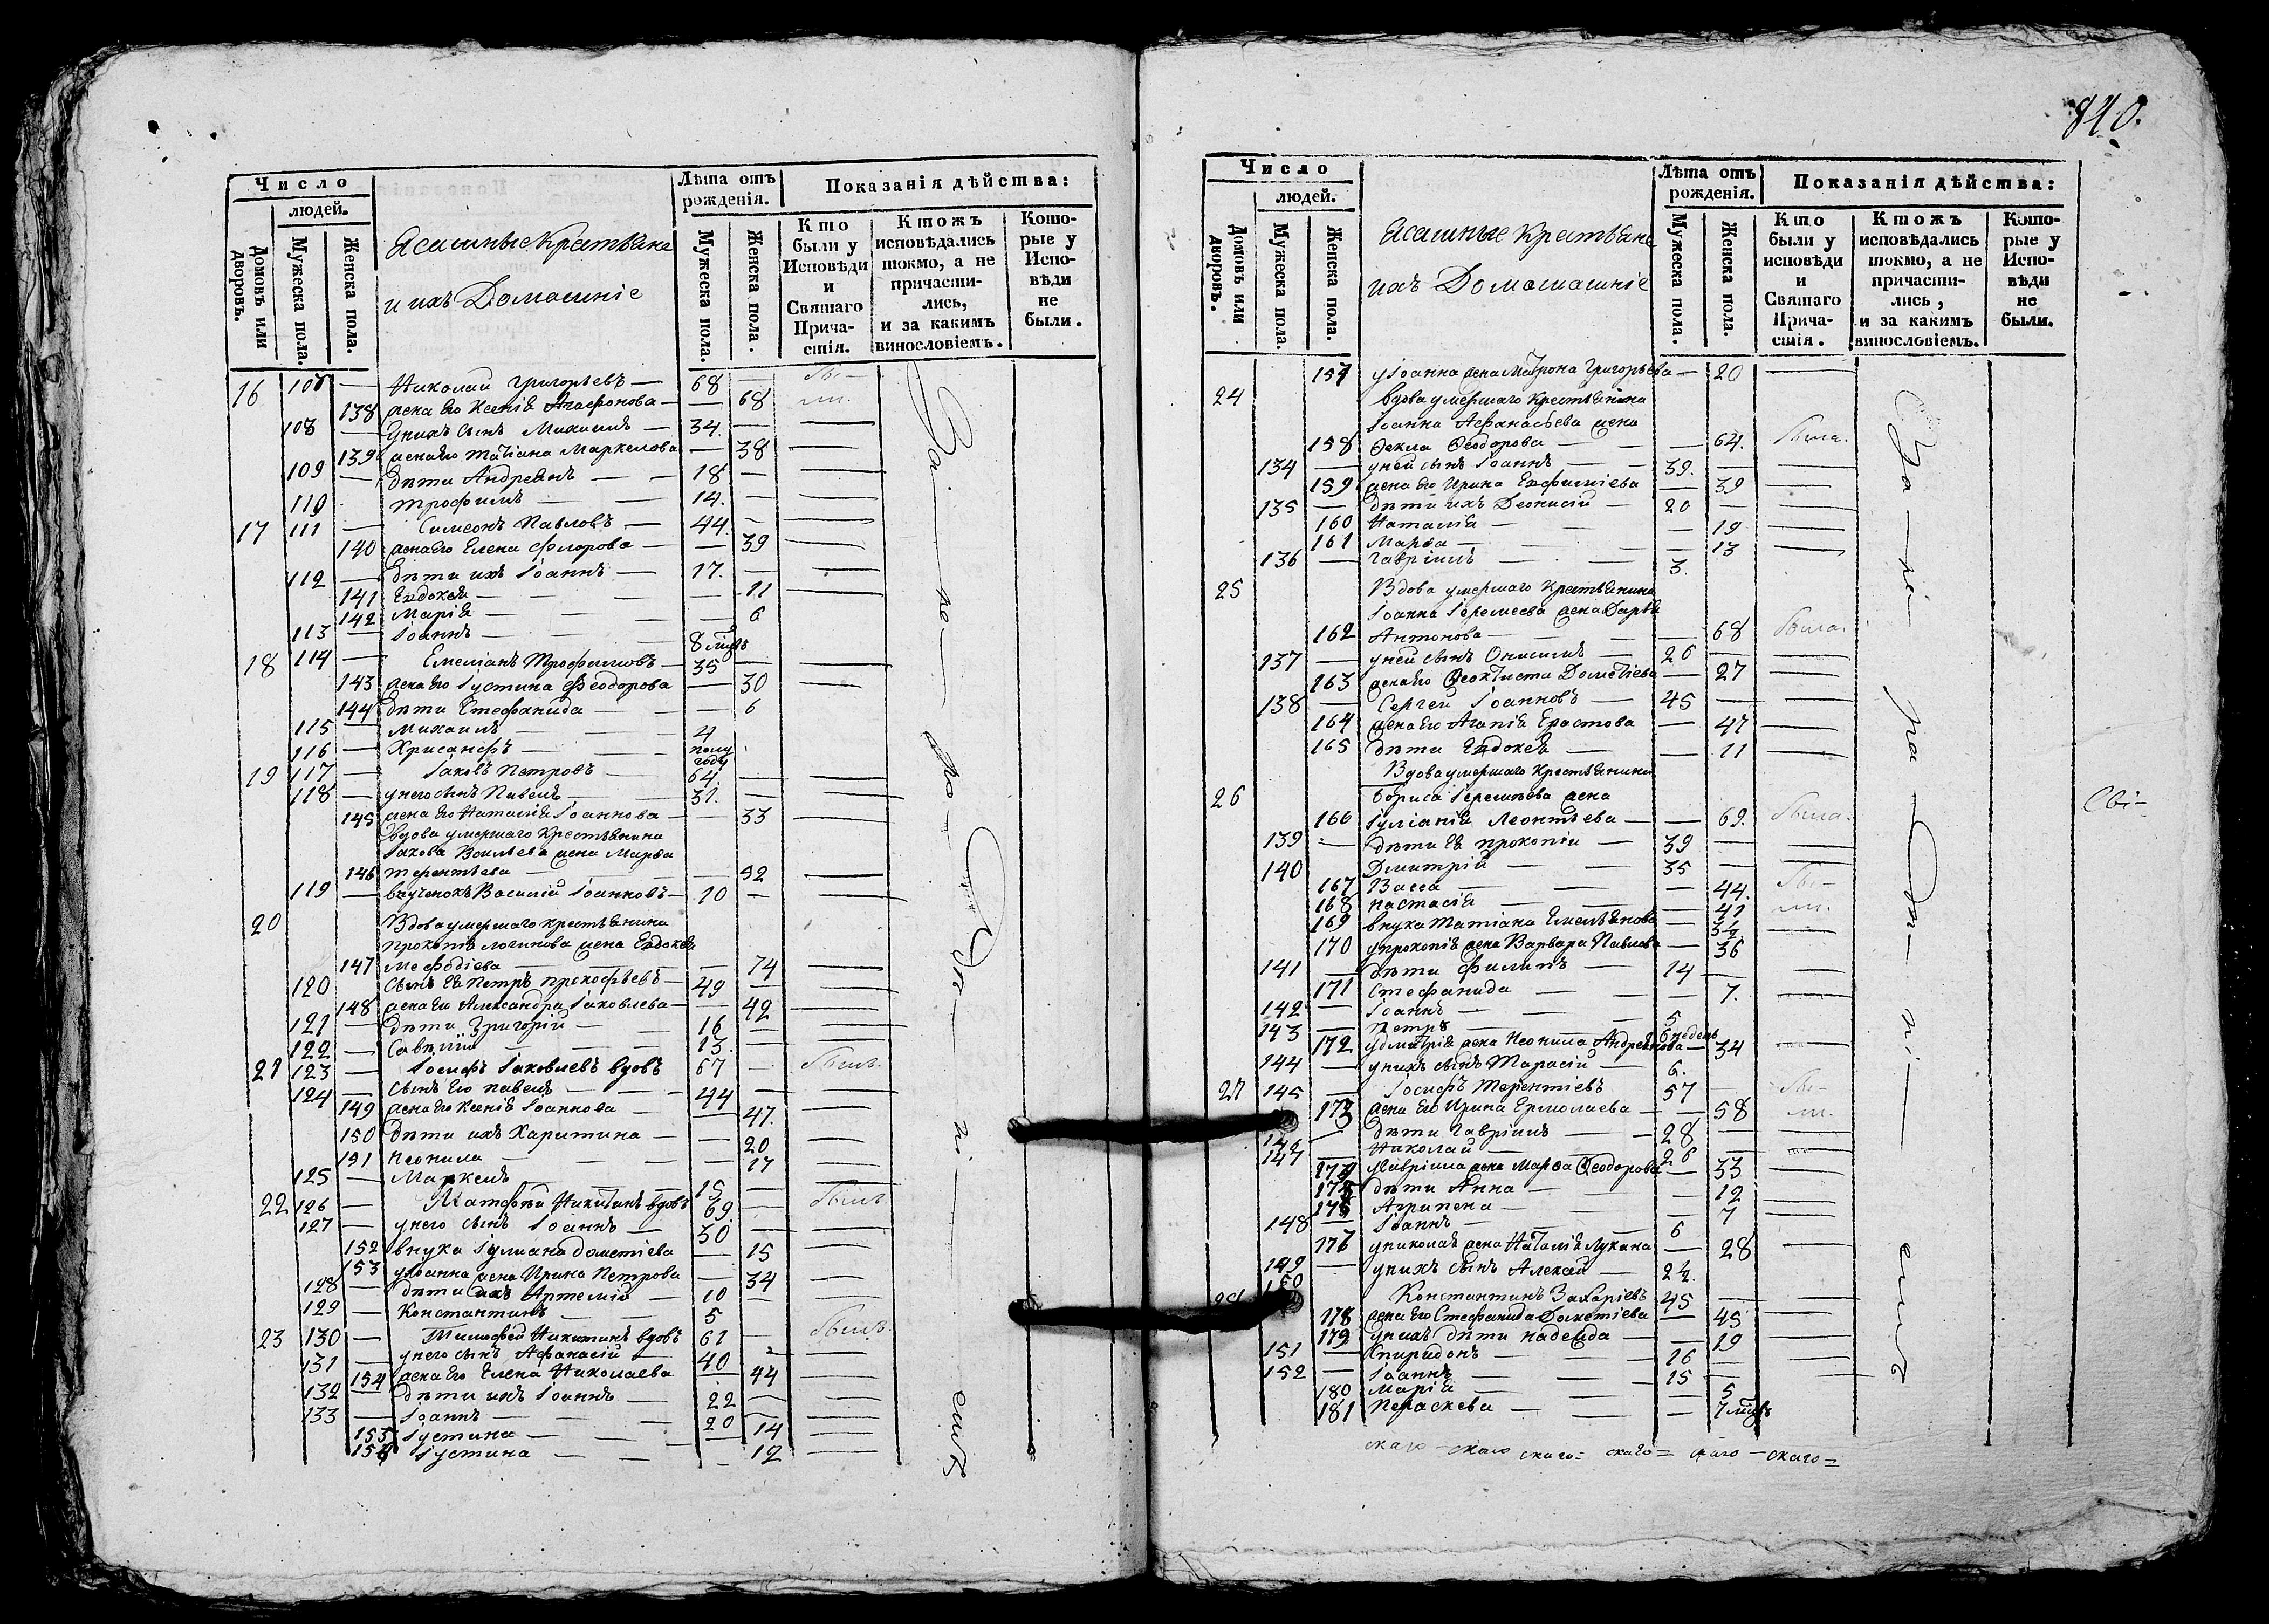 840.
Число
людей.
Домовъ или дворовъ.
Мужеска пола.
Женска пола.
Ясашные крестьяне
и ихъ Домашніе
Лѣта отъ рожденія.
Мужеска пола.
Женска пола.
Показанія дѣйства:
Кто были у Исповѣди и Святаго Прича-стія.
Ктожъ исповѣдались токмо, а не причасти-лись, и за какимъ винословіемъ.
Кото-рые у Испо-вѣди не были.
16 107 — Николай Григорьевъ — 68 — бы-
138 жена его Ксенія Агафонова — — 68 ли.
108 — У нихъ сынъ Михаилъ — 34. —
139 жена его Татіана Маркелова — 38
109 — дѣти Андреянъ — — 18 —
110 Трофимъ — — 14. —
17 111 — Симеонъ Павловъ — 44. —
140 жена его Елена Флорова — — 39
112 — дѣти ихъ Іоаннъ — 17. —
141 Евдокея — — — 11
142 Марія — — — 6
113 — Іоаннъ — — 8 мцъ
18 114 — Емеліанъ Трофимовъ — 35 —
143 жена его Іустина Феодорова — 30
144 дѣти Стефанида — — 6
115 — Михаилъ — — 4
116 — Хрисанфъ — — полу году
19 117 — Іаковъ Петровъ — 64. —
118 — у него сынъ Павелъ — 31. —
145 жена его Наталія Іоаннова — — 33
вдова умершаго крестьянина
Іакова Васильева жена Марѳа
146 Терентьева — — 92
119 — внученокъ Василій Іоанновъ — 10 —
20 Вдова умершаго крестьянина
Прокопія Логинова жена Евдокея
147 Мефодіева — — 74
120 сынъ ея Петръ Прокофьевъ — 49 —
148 жена его Александра Іаковлева — — 42
121 — дѣти Григорій — — 16 —
122 — Савелій — 13. —
21 123 — Іосифъ Іаковлевъ вдовъ 67 — былъ.
124 — сынъ его Павелъ — — 44
149 жена его Ксенія Іоаннова — — 47.
150 дѣти ихъ Харитина — — 20
151 Неонила — — — 17
125 — Маркелъ — — 15 —
22 126 — Матфѣй Никитинъ вдовъ 69 — былъ
127 — у него сынъ Іоаннъ — 50 —
152 внука Іулиана Дометіева — 15
153 у Іоанна жена Ирина Петрова — 34
128 — дѣти ихъ Артемій — 10 —
129 — Константинъ — 5
23 130 — Тимофей Никитинъ вдовъ 61 — былъ.
131 — у него сынъ Афанасій — 40
154 жена его Елена Николаева — 44
132 — дѣти ихъ Іоаннъ — 22 —
133 — Іоаннъ — — 20 —
155 Іустина — — — 14
156 Іустина — — — 12
Число
людей.
Домовъ или дворовъ.
Мужеска пола.
Женска пола.
Ясашные крестьяне
ихъ Домашніе
Лѣта отъ рожденія.
Мужеска пола.
Женска пола.
Показанія дѣйства:
Кто были у исповѣди и Святаго Прича-стія.
Ктожъ исповѣдались токмо, а не причасти-лись, и за какимъ винословіемъ.
Кото-рые у Испо-вѣди не были.
157 у Іоанна жена Матрона Григорьева — 20
24 вдова умершаго крестьянина
Іоанна Афанасьева жена
158 Ѳекла Ѳеодорова — — 64. была.
134 — у ней сынъ Іоаннъ — — 39. —
159 жена его Ирина Евфиміева — 39
135 — дѣти ихъ Деонисій — 20 —
160 Наталія — — 19
161 Марѳа — — — 13
136 — Гавріилъ — — 3.
25 Вдова умершаго крестьянина
Іоанна Іеремеева жена Дарья
162 Антонова — — — 68 была.
137 — у ней сынъ Онисимъ — 26 —
163 жена его Ѳеоктиста Дометіева — 27
138 — Сергей Іоанновъ — 45 —
164 жена его Агапія Ерастова — 47
165 дѣти Евдокея — — 11
Вдова умершаго крестьянина
26 Бориса Іеремѣева жена
166 Іуліанія Леонтьева — — 69. была.
139 — дѣти ея Прокопій — 39 —
140 Дмитрій — — 35 —
167 Васса — — — 44. бы-
168 Настасія — — — 41 ли.
169 внука Татіана Емельянова — 3½
170 у Прокопія жена Варвара Павлова — 36
141 — дѣти Филипъ — 14 —
171 Стефанида — — — 7.
142 — Іоаннъ — — 5
143 — Петръ — — 6 недель
172 у Дмитрія жена Неонила Андреянова — 34
144 — у нихъ сынъ Тарасій — 6.
27 145 — Іосифъ Терентіевъ 57 — бы-
173 жена его Ирина Ермолаева — — 58 ли.
146 — дѣти Гавріилъ — — 28 —
147 — Николай — — 26 —
174 у Гавріила жена Марѳа Ѳеодорова — 33
175 дѣти Анна — — — 12
176 Агрипена — — — 7
148 — Іоаннъ — — 6
177 у Николая жена Наталія Лукина — 28
149 — у нихъ сынъ Алексей — 2½.
150 Константинъ Захаріевъ 45 —
178 жена его Стефанида Дометіева — 45
179 у нихъ дѣти Надежда — — 19
151 — Спиридонъ — — 16 —
152 — Іоаннъ — — 15 —
180 Марія — — — 5
181 Пераскева — — — 7 мцъ
скаго — скаго скаго = скаго = скаго — скаго =